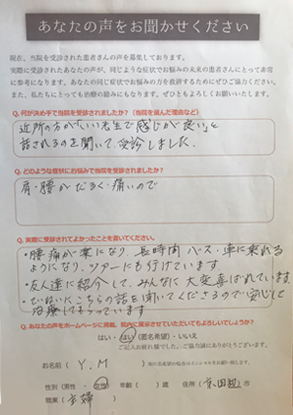 あなたの声をお聞かせください
現在、当院を受診された患者さんの声を募集しております。
実際に受診されたあなたの声が、同じような症状でお悩みの未来の患者さんにとって非常
に参考になります。同じ症状でお悩みの方を救済するためにぜひご協力ください。
また、私たちにとっても治療の励みにもなります。ぜひともよろしくお願いいたします。
Q. 何が決め手で当院を受診されましたか?(当院を選んだ理由など)
近所の方がいい先生で感じが良いと
話されるのを聞いて、受診しました。
Q. どのような症状にお悩みで当院を受診されましたか?
肩・腰がだるく・痛いので
Q. 実際に受診されてよかったことを書いてください。
・腰痛が楽になり、長時間バス・車に乗れる
ようになり、ツアーにも行けています
・友人達に紹介して、みんなに大変喜ばれています。
・ていねいにこちらの話を聞いてくださるので安心して
治療にもらっています
Q. あなたの声をホームページに掲載、院内に展示させていただいてもよろしいでしょうか?
はい・はい(匿名希望)・いいえ
ご記入お疲れ様でした。ご協力誠にありがとうございます。
お名前( Y.M )
性別(男性・女性) 年齢( )歳 住所( 京田辺 )市
職業( 主婦 )